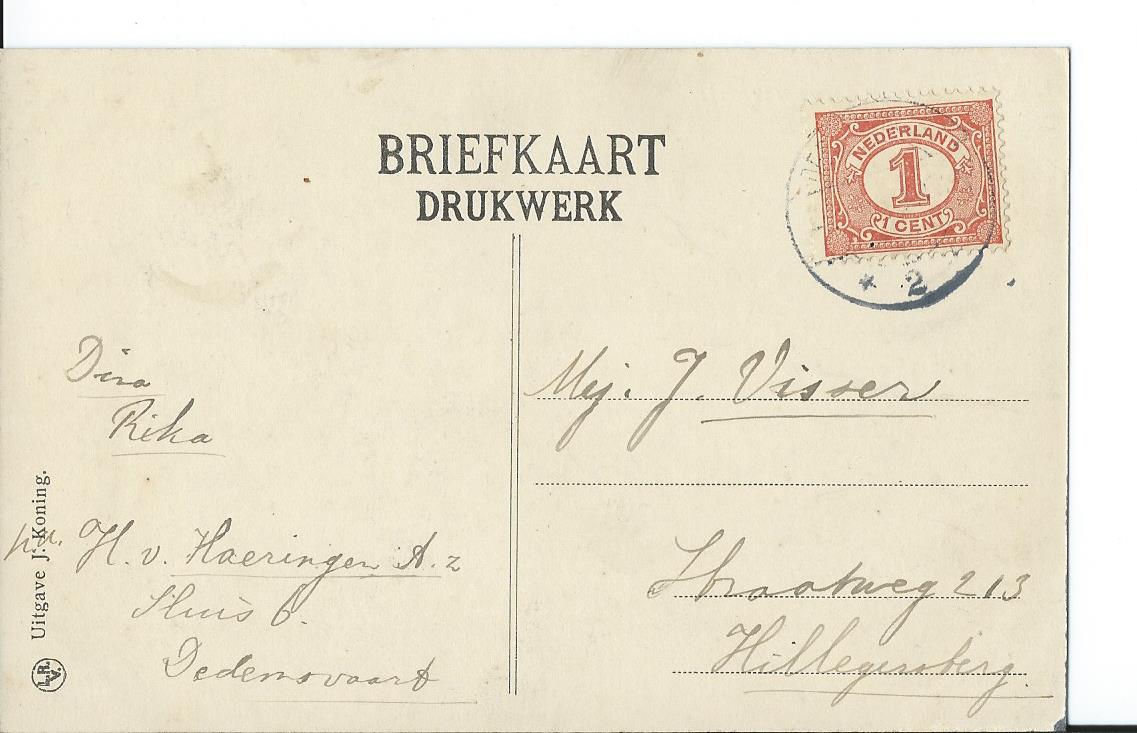 BRIEFKAART
DRUKWERK
NEDERLAND
1
1 CENT
* 2
Dina
Rika
p.a. H. v. Haeringen A.z
Sluis 6.
Dedemsvaart
Uitgave J. Koning.
L.R.
V.
Mej. J. Visser
Straatweg 213
Hillegersberg.